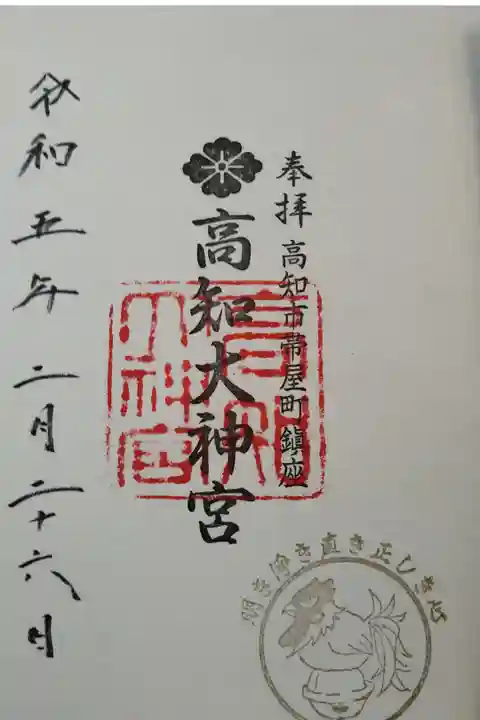 奉拝 高知市帯屋町鎮座
高知大神宮
令和五年二月二十六日
明き浄き直き正しき心